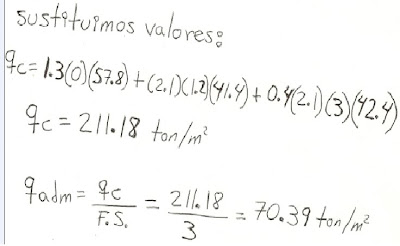 sustituimos valores:
qc = 1.3(0)(57.8) + (2.1)(1.2)(41.4) + 0.4(2.1)(3)(42.4)
qc = 211.18 ton/m²
qadm = qc / F.S. = 211.18 / 3 = 70.39 ton/m²